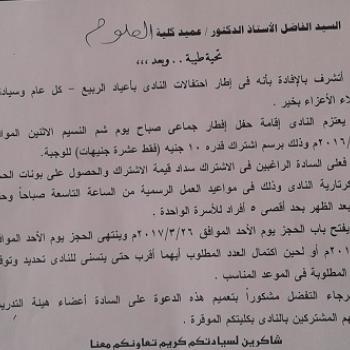 السيد الفاضل الأستاذ الدكتور / عميد كلية العلوم
تحية طيبة . . وبعد ،،،
أتشرف بالإفادة بأنه فى إطار احتفالات النادى بأعياد الربيع - كل عام وسيادة
لاء الأعزاء بخير .
يعتزم النادى إقامة حفل إفطار جماعى صباح يوم شم النسيم الاثنين الموا
٢٠١٦/ م وذلك برسم اشتراك قدره ١٠ جنيه (فقط عشرة جنيهات) للوجبة.
فعلى السادة الراغبين فى الاشتراك سداد قيمة الاشتراك والحصول على بونات الح
كرتارية النادى وذلك فى مواعيد العمل الرسمية من الساعة التاسعة صباحاً وح
بعد الظهر بحد أقصى ٥ أفراد للأسرة الواحدة .
يفتح باب الحجز يوم الأحد الموافق ٢٠١٧/٣/٢٦ وينتهى الحجز يوم الأحد الموافق
م أو لحين اكتمال العدد المطلوب أيهما أقرب حتى يتسنى للنادى تحديد وتوف
المطلوبة فى الموعد المناسب .
رجاء التفضل مشكوراً بتعميم هذه الدعوة على السادة أعضاء هيئة التدري
هم المشتركين بالنادى بكليتكم الموقرة .
شاكرين لسيادتكم كريم تعاونكم معنا